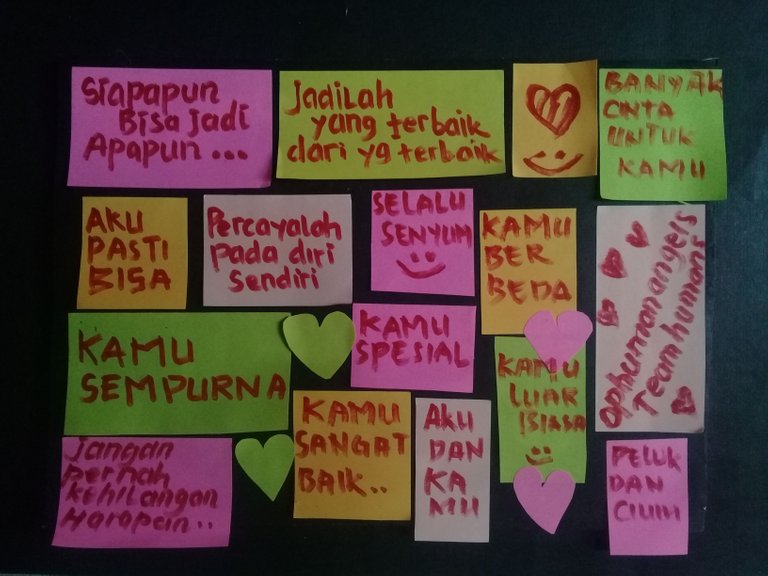 Siapapun
Bisa Jadi
Apapun ...
Jadilah
yang terbaik
dari yg terbaik
BANYAK
CINTA
UNTUK
KAMU
AKU
PASTI
BISA
Percayalah
pada diri
sendiri
SELALU
SENYUM
KAMU
BER
BEDA
Ophumanangels
Teamhumans
KAMU
SEMPURNA
KAMU
SPESIAL
KAMU
LUAR
BIASA
Jangan
pernah
kehilangan
Harapan..
KAMU
SANGAT
BAIK..
AKU
DAN
KA
MU
PELUK
DAN
CIUM